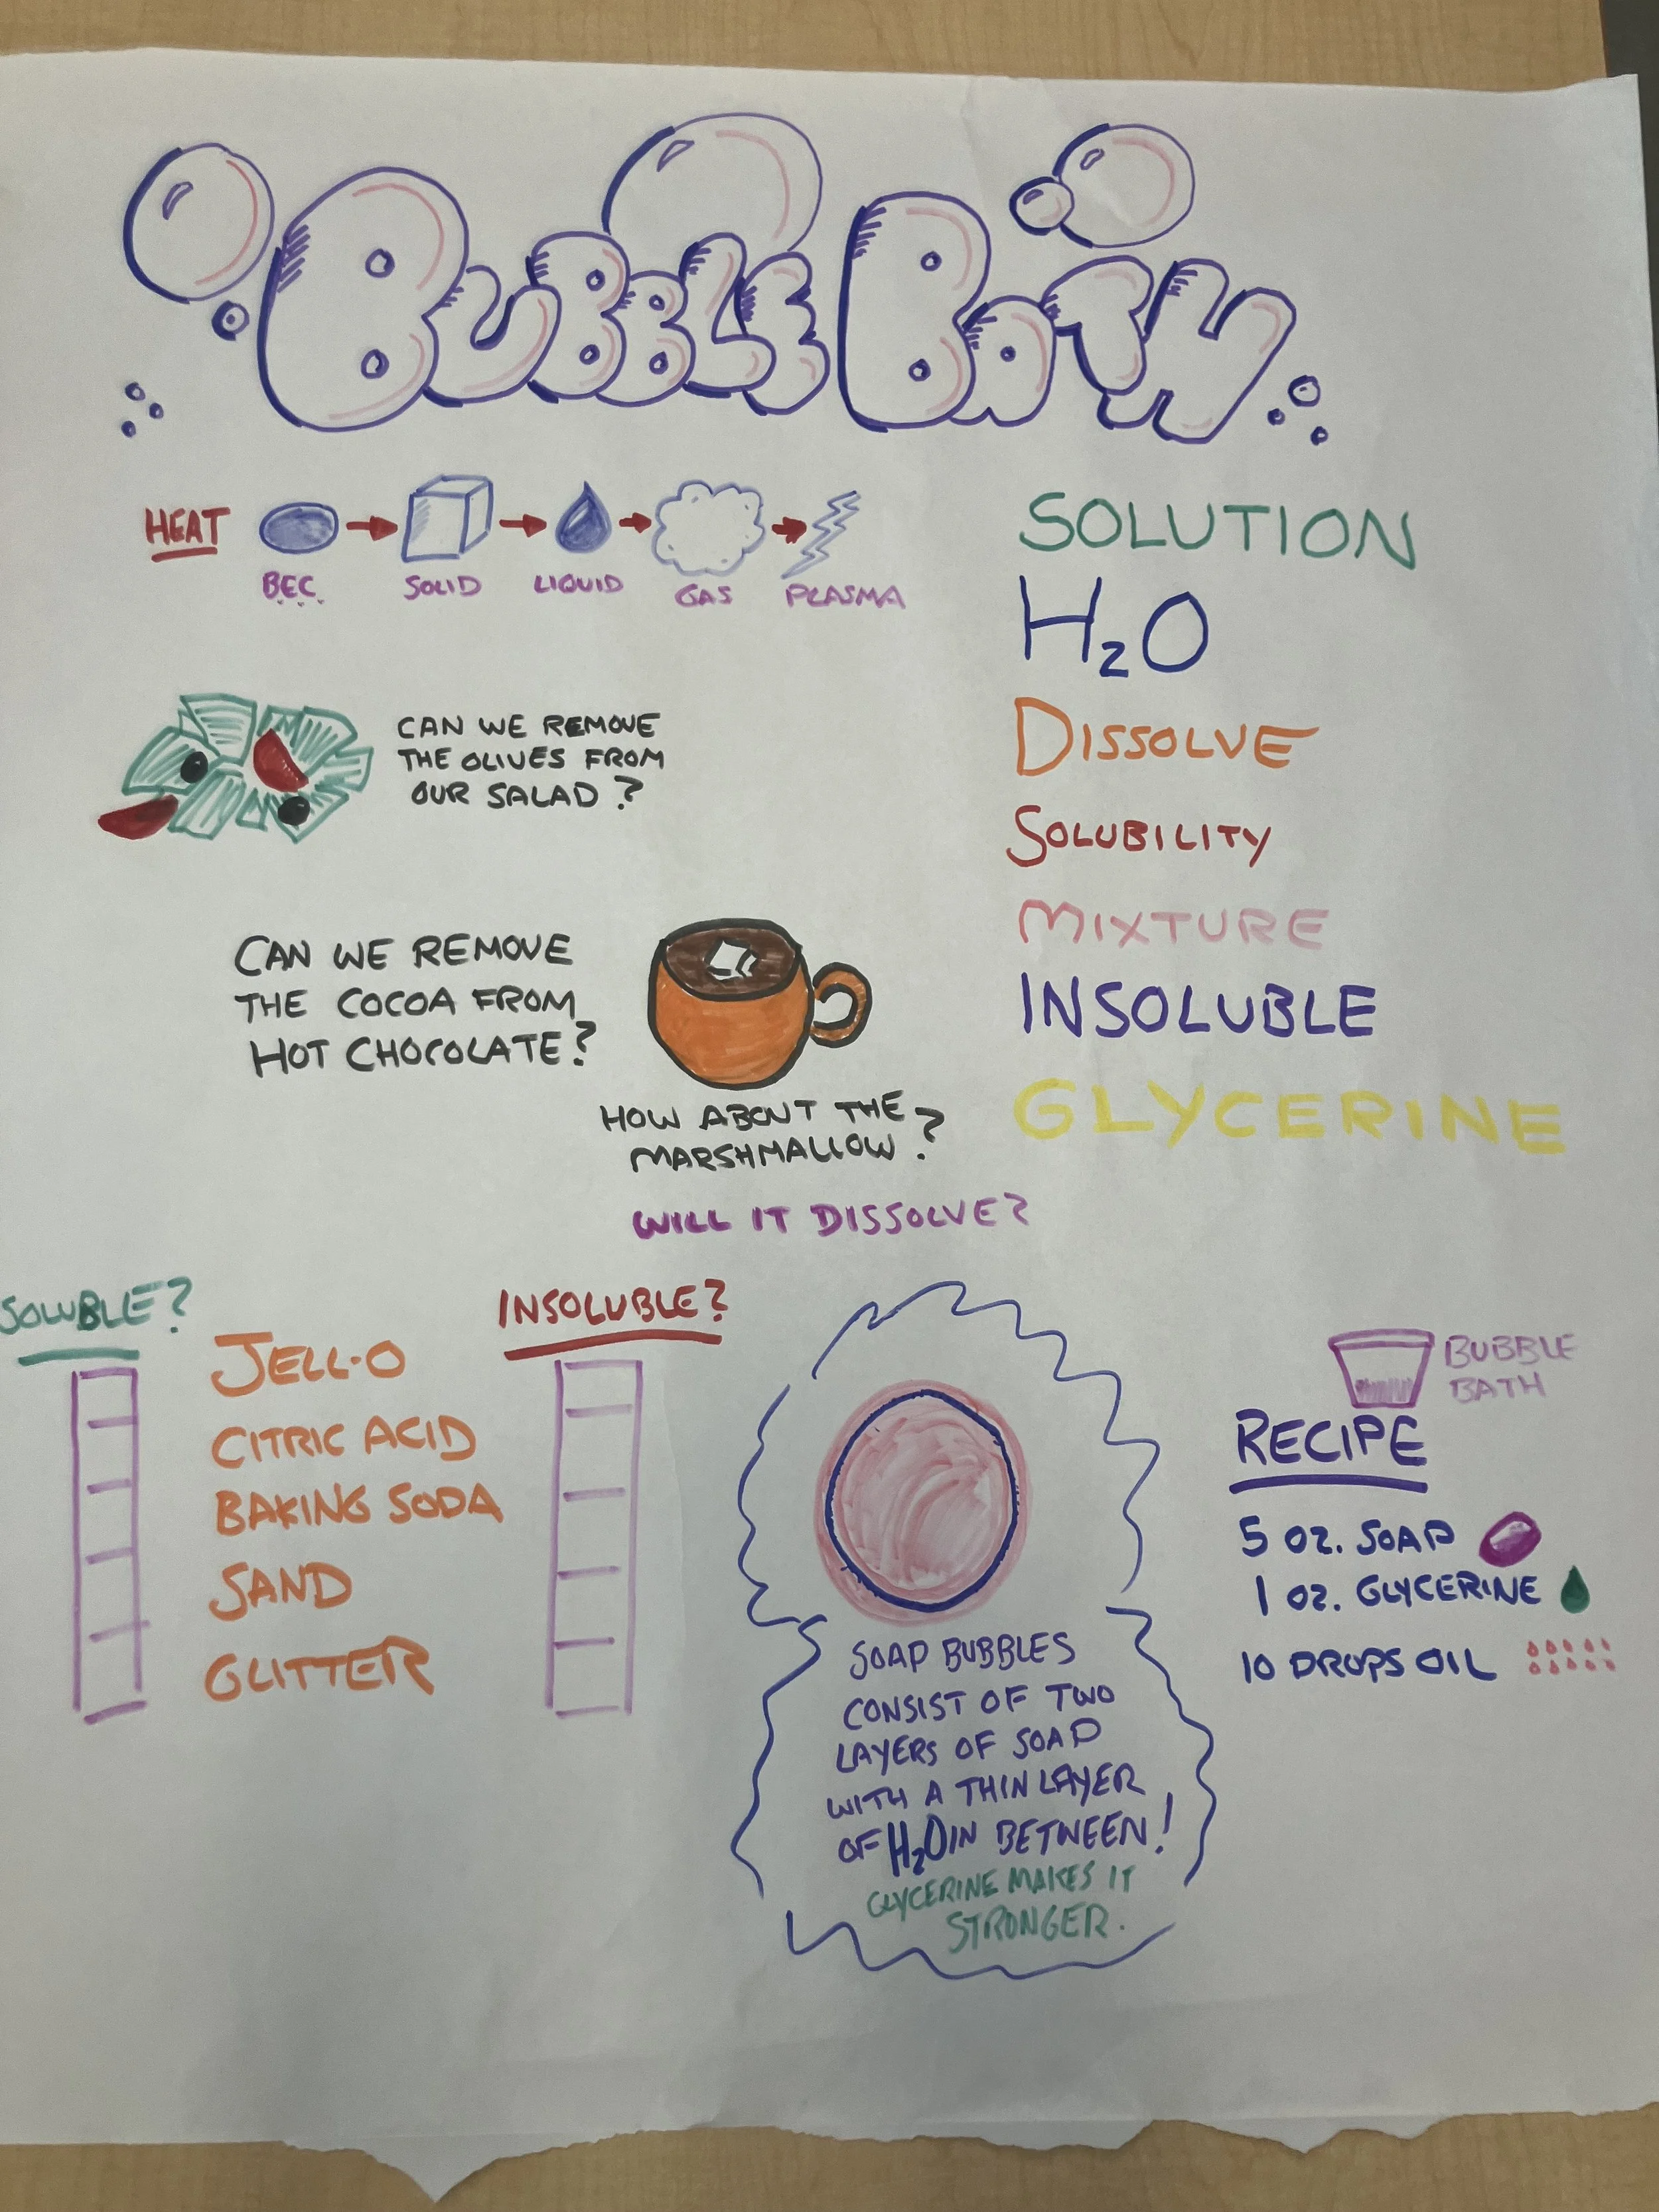 BUBBLE BATH
HEAT
B.E.C.
SOLID
LIQUID
GAS
PLASMA
SOLUTION
H₂O
DISSOLVE
SOLUBILITY
MIXTURE
INSOLUBLE
GLYCERINE
CAN WE REMOVE
THE OLIVES FROM
OUR SALAD?
CAN WE REMOVE
THE COCOA FROM
HOT CHOCOLATE?
HOW ABOUT THE
MARSHMALLOW?
WILL IT DISSOLVE?
SOLUBLE?
INSOLUBLE?
JELL-O
CITRIC ACID
BAKING SODA
SAND
GLITTER
SOAP BUBBLES
CONSIST OF TWO
LAYERS OF SOAP
WITH A THIN LAYER
OF H₂O IN BETWEEN!
GLYCERINE MAKES IT
STRONGER.
BUBBLE
BATH
RECIPE
5 OZ. SOAP
1 OZ. GLYCERINE
10 DROPS OIL